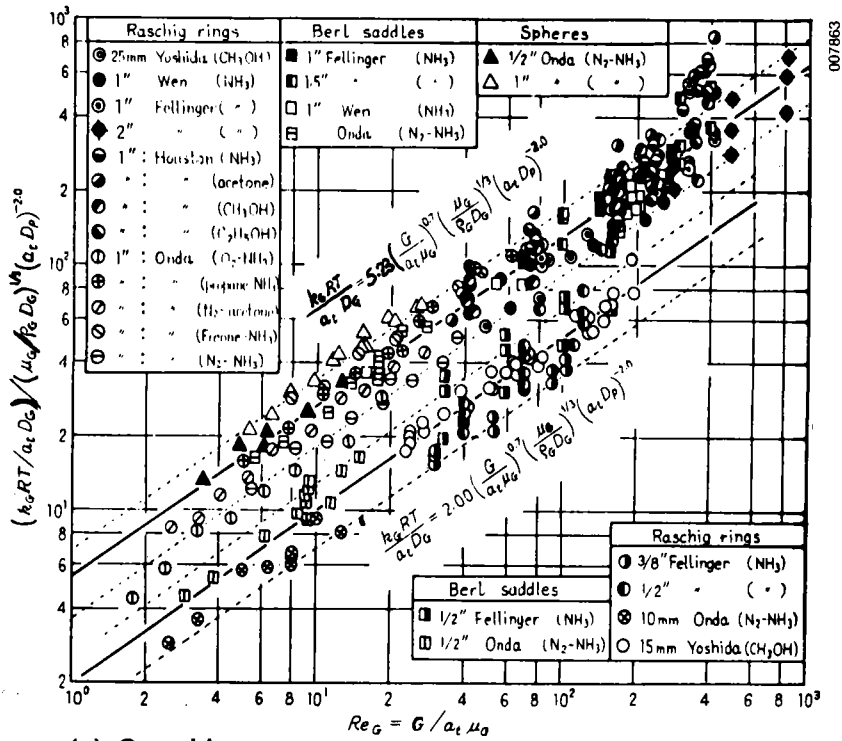 007863
Raschig rings
25mm Yoshida (CH3OH)
1" Wen (NH3)
1" Fellinger ( " )
2" " ( " )
1" : Houston (NH3)
" : " (acetone)
" : " (CH3OH)
" : " (C2H5OH)
1" : Onda (O2-NH3)
" : " (propane-NH3)
" : " (N2-acetone)
" : " (Freone-NH3)
" : " (N2-NH3)
Berl saddles
1" Fellinger (NH3)
1.5" " ( " )
1" Wen (NH3)
Onda (N2-NH3)
Spheres
1/2" Onda (N2-NH3)
1" " ( " )
kGRT/atDG = 5.23 (G/atμG)^0.7 (μG/ρGDG)^1/3 (atDp)^-2.0
kGRT/atDG = 2.00 (G/atμG)^0.7 (μG/ρGDG)^1/3 (atDp)^-2.0
Berl saddles
1/2" Fellinger (NH3)
1/2" Onda (N2-NH3)
Raschig rings
3/8" Fellinger (NH3)
1/2" " ( " )
10mm Onda (N2-NH3)
15mm Yoshida (CH3OH)
(kGRT/atDG)/(μG/ρGDG)^1/3 (atDp)^-2.0
10^3
8
6
4
2
10^2
8
6
4
2
10^1
8
6
4
2
10^0 2 4 6 8 10^1 2 4 6 8 10^2 2 4 6 8 10^3
ReG = G/atμG